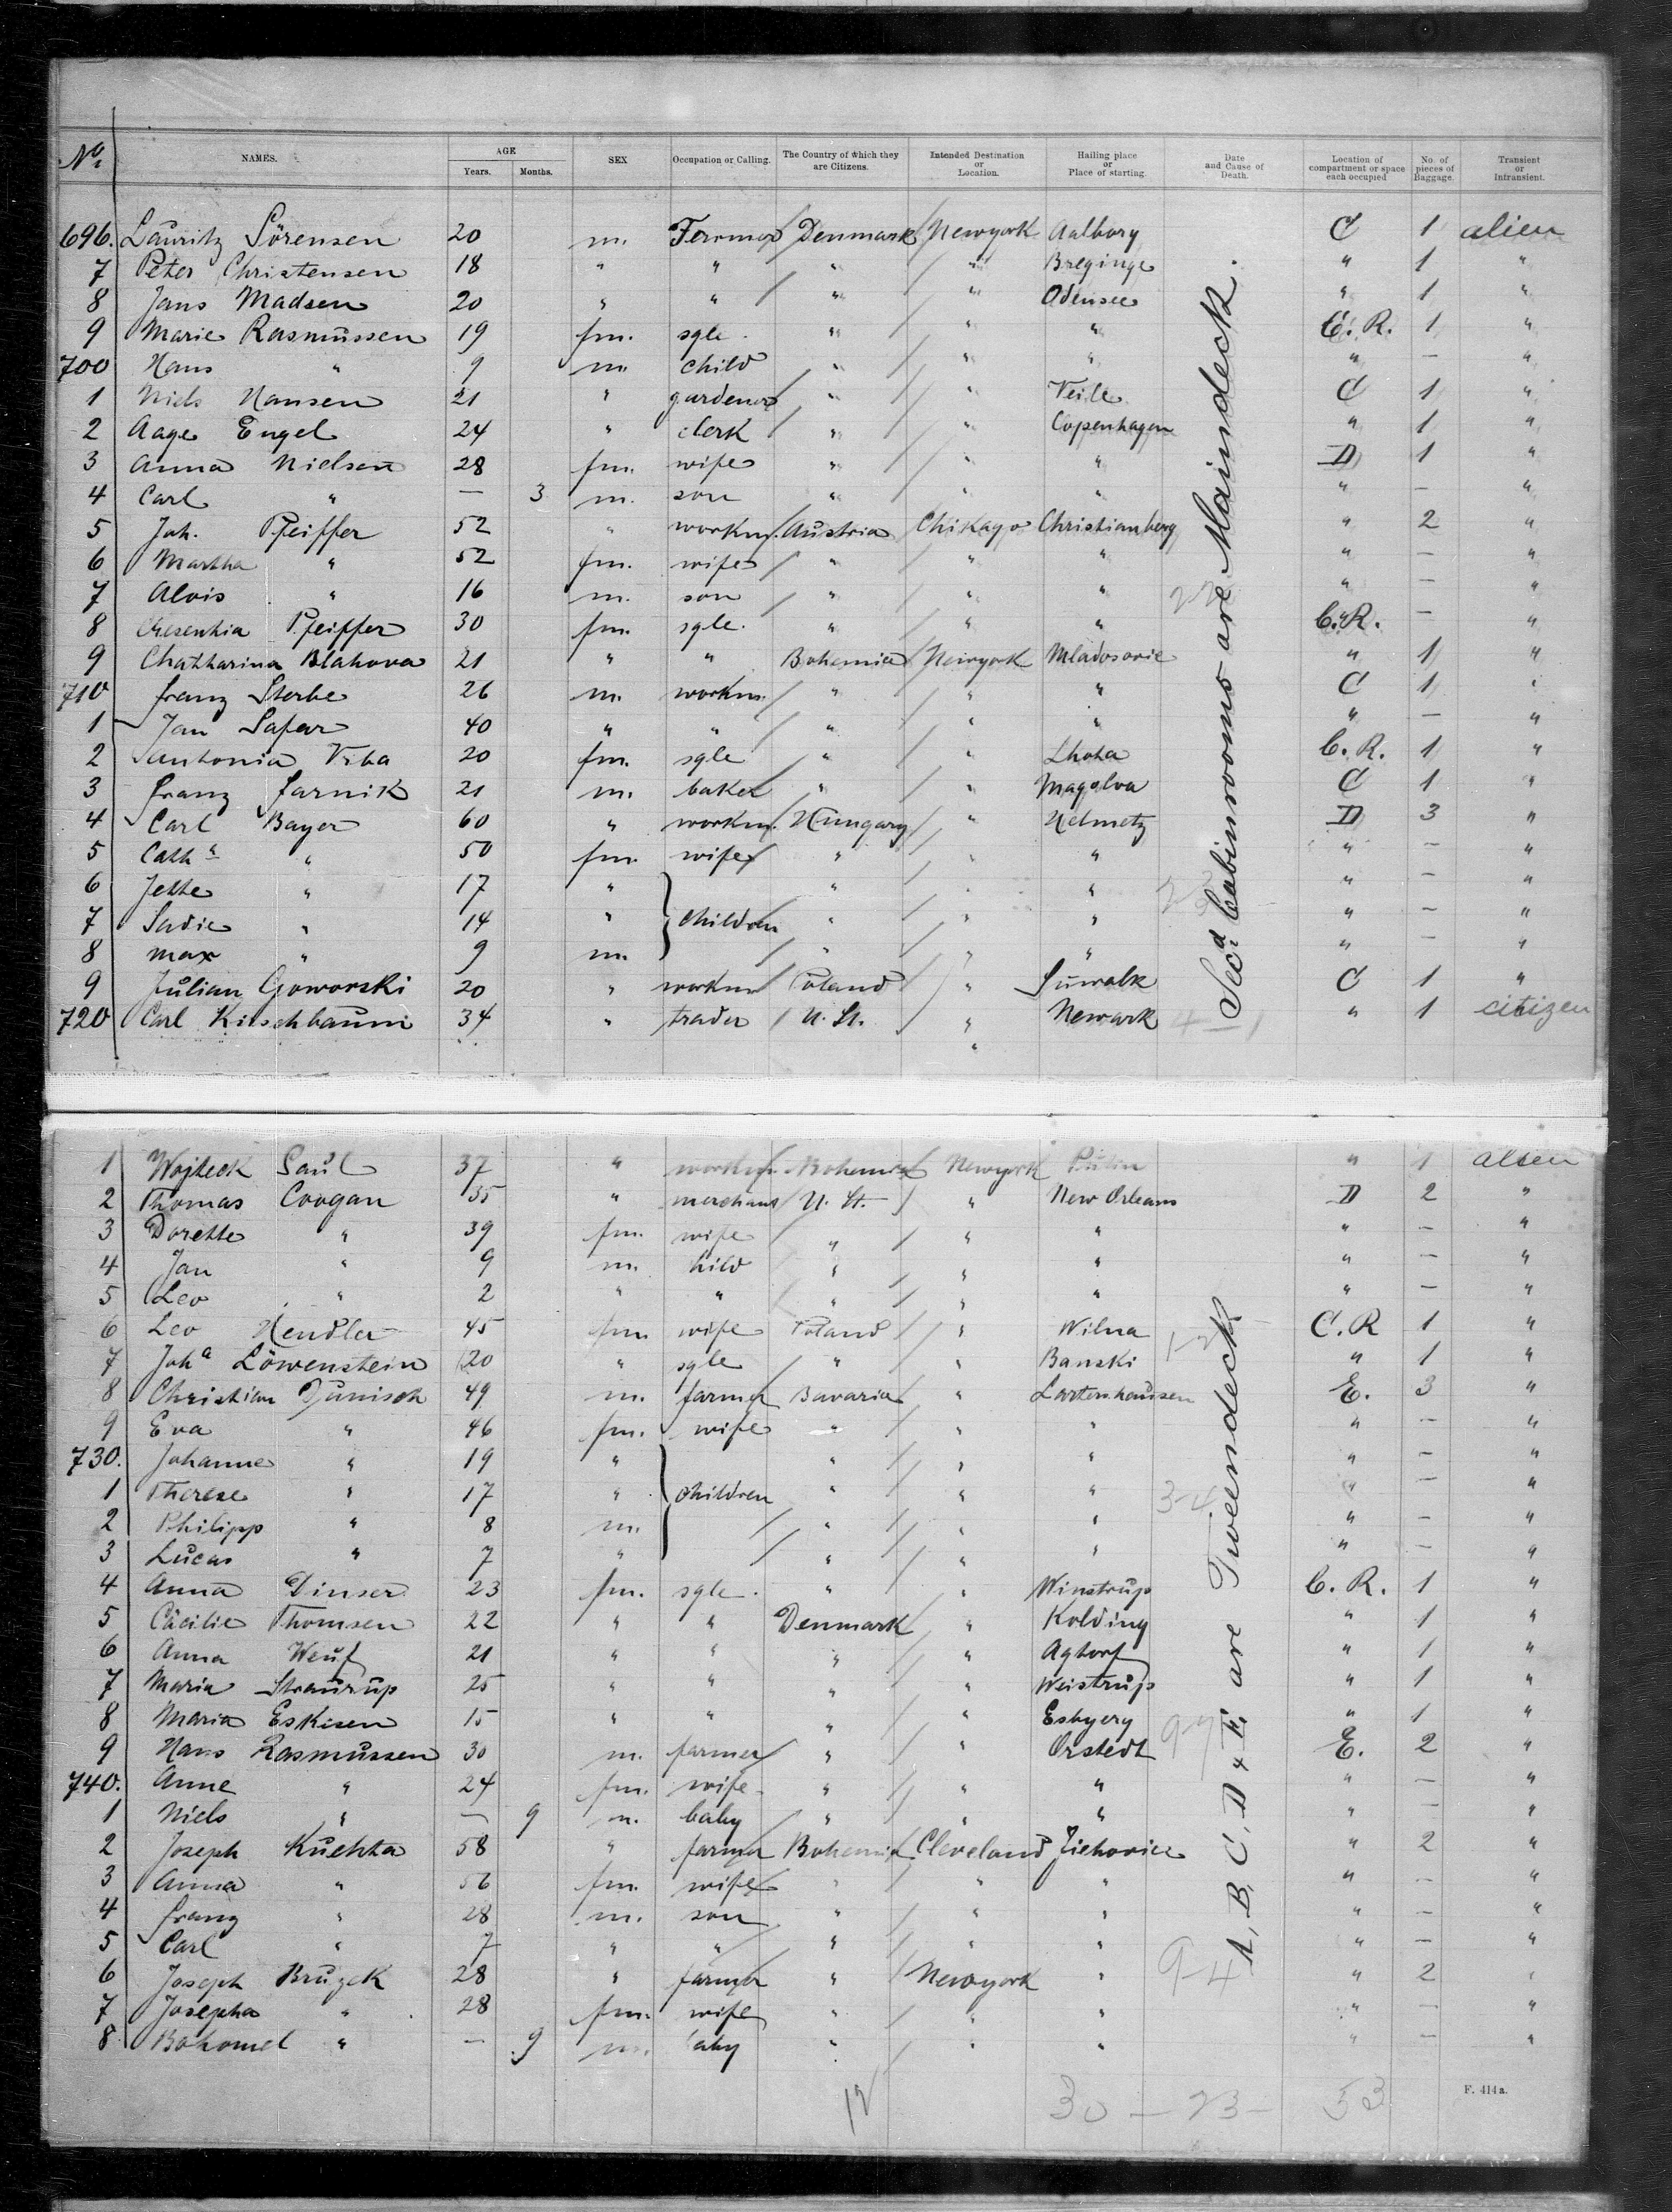 No. NAMES. AGE Years. Months. SEX Occupation or Calling. The Country of which they are Citizens. Intended Destination or Location. Hailing place or Place of starting. Date and Cause of Death. Location of compartment or space each occupied No. of pieces of Baggage. Transient or Intransient.
696. Lauritz Sörensen 20 m. Denmark Newyork Aalborg C 1 alien
7 Peter Christensen 18 " " " " Breginge " 1 "
8 Jans Madsen 20 " " " " Odensee " 1 "
9 Marie Rasmussen 19 fm. sgle. " " " C. R. 1 "
700 Hans " 9 m. child " " " " — "
1 Niels Hansen 21 " gardener " " Veile C 1 "
2 Aage Engel 24 " clerk " " Copenhagen " 1 "
3 Anna Nielsen 28 fm. wife " " " D 1 "
4 Carl " — 3 m. son " " " " — "
5 Joh. Pfeiffer 52 " workm. Austria Chikago Christianberg " 2 "
6 Martha " 52 fm. wife " " " " — "
7 Alois " 16 m. son " " " " — "
8 Cresenhia Pfeiffer 30 fm. sgle. " " " C. R. — "
9 Chatharina Blahova 21 " " Bohemia Newyork Mladosovic " 1 "
710 Franz Sterbe 26 m. workm. " " " C 1 "
1 Jan Safar 40 " " " " " " — "
2 Antonia Vrba 20 fm. sgle " " Lhota C. R. 1 "
3 Franz Jarnik 21 m. baker " " Magolva C 1 "
4 Carl Bayer 60 " workm. Hungary " Helmetz D 3 "
5 Cath a " 50 fm. wife " " " " — "
6 Jette " 17 " " " " " — "
7 Sadie " 14 " children " " " " — "
8 Max " 9 m. " " " " — "
9 Julian Goworski 20 " workm Poland " Suwalk C 1 "
720 Carl Kirschbaum 34 " trader U. St. " Newark " 1 citizen
"
1 Wojteck Saul 37 " workm. Bohemia Newyork Putin " 1 alien
2 Thomas Coogan 35 " merchant U. St. " New Orleans D 2 "
3 Dorette " 39 fm. wife " " " " — "
4 Jan " 9 m. hild " " " " — "
5 Leo " 2 " " " " " " — "
6 Leo Hendler 45 fm wife Poland " Wilna C. R 1 "
7 Joh a Löwenstein 20 " sgle " " Banski " 1 "
8 Christian Dünisch 49 m. farmer Bavaria " Lartenhausen E. 3 "
9 Eva " 46 fm. wife " " " " — "
730. Johanne " 19 " " " " " — "
1 Therese " 17 " children " " " " — "
2 Philipp " 8 m. " " " " — "
3 Lucas " 7 " " " " " — "
4 Anna Dinser 23 fm. sgle. " " Winstrup C. R. 1 "
5 Cäcilie Thomsen 22 " " Denmark " Kolding " 1 "
6 Anna Weuf 21 " " " " Agtorf " 1 "
7 Maria Straurup 25 " " " " Weistrup " 1 "
8 Maria Eskisen 15 " " " " Esbyerg " 1 "
9 Hans Rasmussen 30 m. farmer " " Orstedt E. 2 "
740. Anne " 24 fm. wife " " " " — "
1 Niels " — 9 m. baby " " " " — "
2 Joseph Kuchta 58 " farmer Bohemia Cleveland Zichovice " 2 "
3 Anna " 56 fm. wife " " " " — "
4 Franz " 28 m. son " " " " — "
5 Carl " 7 " " " " " " — "
6 Joseph Bruzek 28 " farmer " Newyork " " 2 "
7 Josepha " 28 fm. wife " " " " — "
8 Bohomel " — 9 m. aby " " " " — "
12 30 — 23 — 53 F. 414 a.
Secd. Cabinrooms are Maindeck.
A, B, C, D & E are Tweendeck